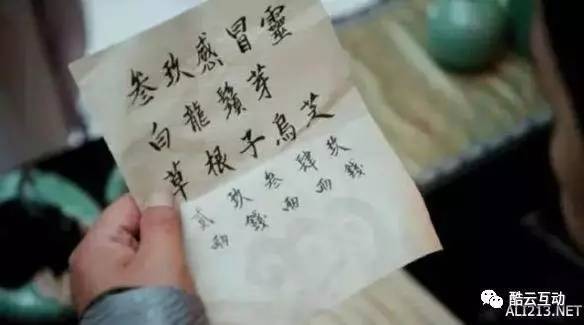 叁玖感冒靈
白龍鬚芽
草根子烏芝
貳玖叁肆玖
兩錢兩兩錢
酷云互动
ALI213.NET